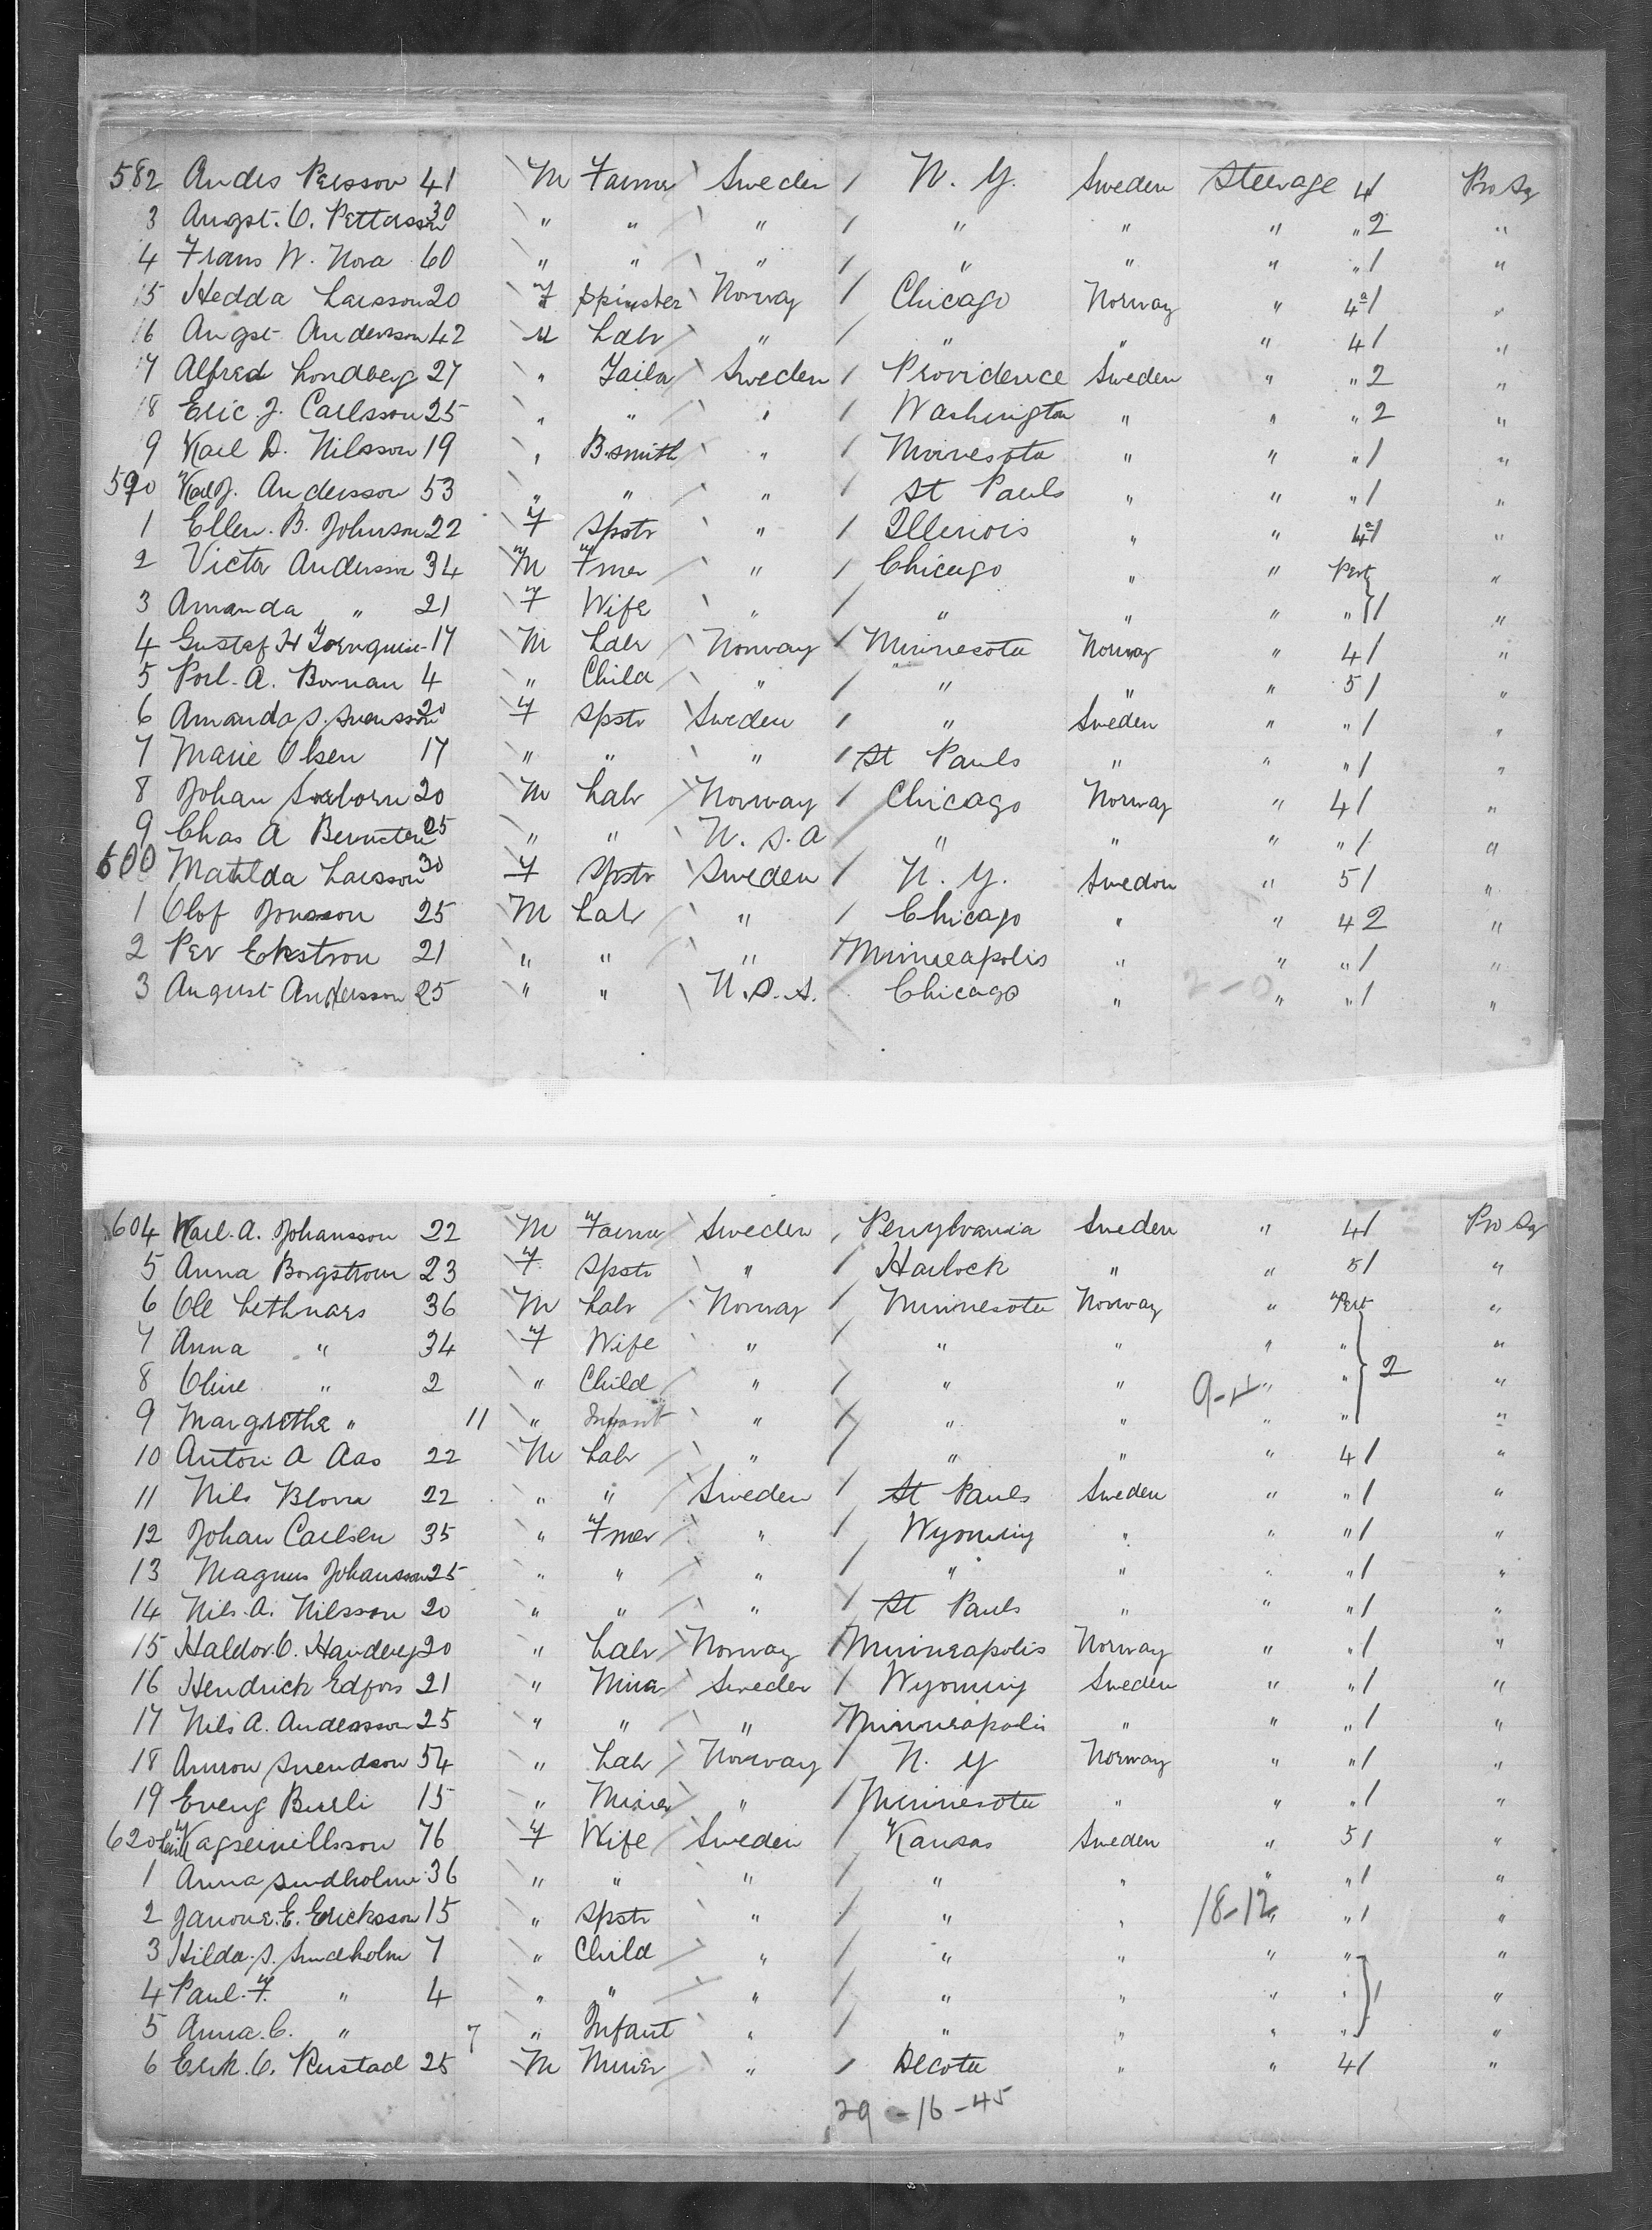 582 Andrs Persson 41 M Farmer Sweden / N. Y. Sweden Steerage 4/ Pro Sg
3 Augst. C. Pettersson 30 " " " / " " " " 2 "
4 Frans W. Nova 60 " " " / " " " " / "
15 Hedda Larsson 20 F Spinster Norway / Chicago Norway " 4a/ "
16 Augst Andersson 42 M Labr " / " " " 4/ "
17 Alfred Londberg 27 " Tailor Sweden / Providence Sweden " " 2 "
18 Eric J. Carlsson 25 " " " / Washington " " " 2 "
9 Karl D. Nilsson 19 " B.smith " / Minnesota " " " / "
590 Karl J. Andersson 53 " " " / St Pauls " " " / "
1 Ellen. B. Johnson 22 F Spstr " / Illenois " " 4a/ "
2 Victor Andersson 34 M Fmer " / Chicago " " "
3 Amanda " 21 F Wife " / " " " " / "
4 Gustaf H Tornquist 17 M Labr Norway / Minnesota Norway " 4/ "
5 Porl. A. Borman 4 " Child " / " " " 5/ "
6 Amanda S. Svensson 20 F Spstr Sweden / " Sweden " " / "
7 Marie Olsen 17 " " " / St Pauls " " " / "
8 Johan Soxborn 20 M Labr Norway / Chicago Norway " 4/ "
9 Chas A 25 " " U. S. A / " " " " / "
600 Matilda Larsson 30 F Spstr Sweden / N. Y. Sweden " 5/ "
1 Olof Jonsson 25 M Labr " / Chicago " " 4 2 "
2 Per Ekstrom 21 " " " / Minneapolis " " " / "
3 August Andersson 25 " " U. S. A. / Chicago " " " / "
2-0
604 Karl. A. Johansson 22 M Farmer Sweden / Penylvania Sweden " 4/ Pro Sg
5 Anna Borgstrom 23 F Spstr " / Harlock " " 5/ "
6 Ole Lethnars 36 M Labr Norway / Minnesota Norway " "
7 Anna " 34 F Wife " / " " " " "
8 Oline " 2 " Child " / " " " " 2 "
9-
9 Margrethe " 11 " Infant " / " " " " "
10 Anton A Aas 22 M Labr " / " " " 4/ "
11 Nils Blom 22 " " Sweden / St Pauls Sweden " " / "
12 Johan Carlsen 35 " Fmer " / Wyoming " " " / "
13 Magnus Johansson 25 " " " / " " " " / "
14 Nils. A. Nilsson 20 " " " / St Pauls " " " / "
15 Haldor C. Handberg 20 " Labr Norway / Minneapolis Norway " " / "
16 Hendrick Edfors 21 " Miner Sweden / Wyoming Sweden " " / "
17 Nils A. Andersson 25 " " " / Minneapolis " " " / "
18 Amron Svendson 54 " Labr Norway / N. Y Norway " " / "
19 Eveng Burli 15 " Miner " / Minnesota " " " / "
620 76 F Wife Sweden / Kansas Sweden " 5/ "
1 Anna Sundholm 36 " " " / " " " " / "
2 E. Ericksson 15 " Spstr " / " " 18-12 " " / "
3 Hilda. S. Sundholm 7 " Child " / " " " " "
4 Paul. F. " 4 " " " / " " " " / "
5 Anna. C. " 7 " Infant " / " " " " "
6 Erik. O. Rustad 25 M Miner " / Decota " " 4/ "
29-16-45